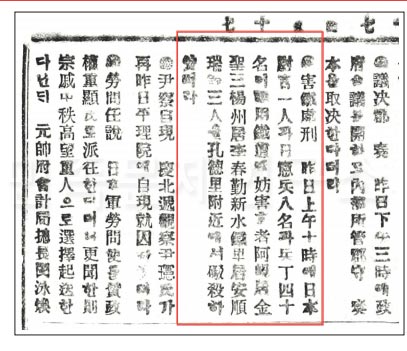 七十
◎議决 奏 昨日下午三時에政
府會議를開하고內部所管郡守 奏
本을取决한다더라
◎害鐵處刑 昨日上午十時에日本
尉官一人과日憲兵八名과兵丁四十
名이 鐵道에妨害한者阿峴居金
聖三楊州居李春勤新水鐵里居安順
瑞等三人을孔德里附近에셔砲殺하
엿더라
◎尹察自現 慶北觀察尹 氏가
再昨日平理院에自現就囚하엿더라
◎勞問任說 日 軍勞問使를贊政
權重顯氏로派往한다더니更聞한則
宗戚中秩高望重人으로選擇起送한
다난듸 元帥府會計局摠長閔泳煥